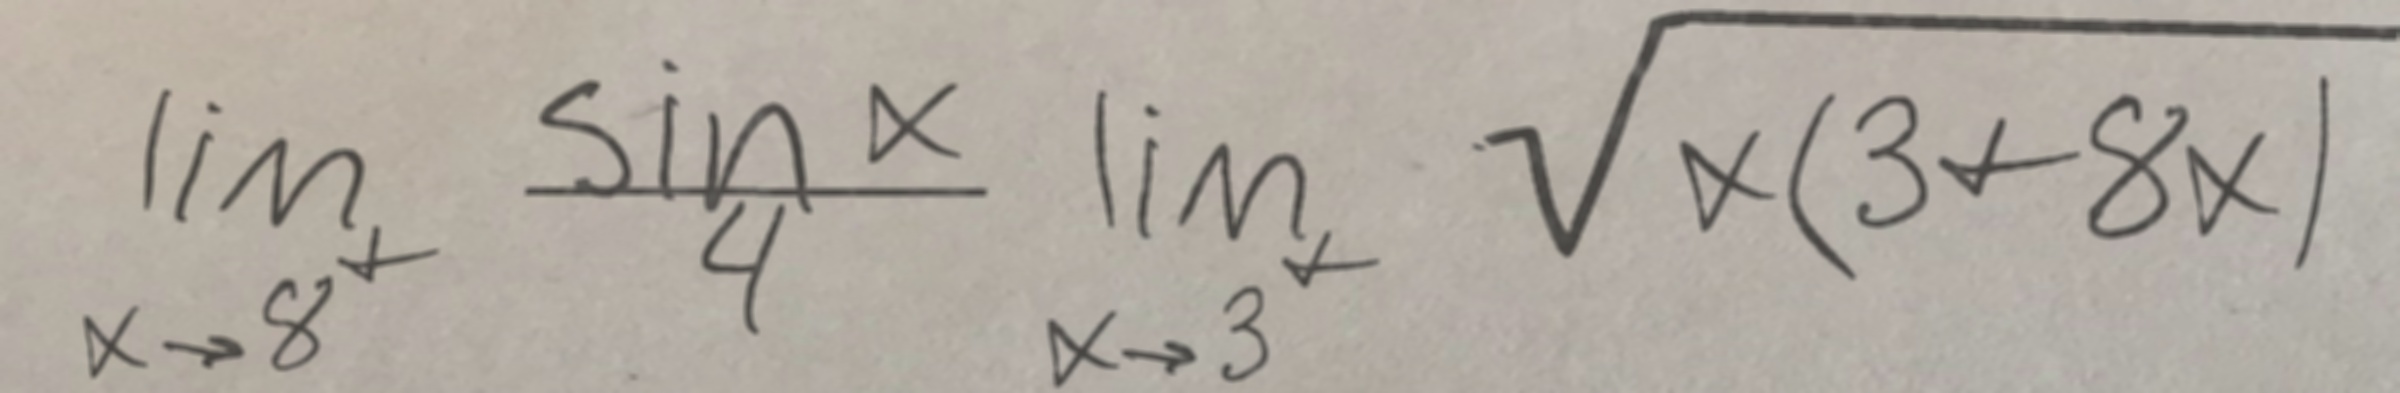 lim x→8⁺ sin x / 4 lim x→3⁺ √x(3+8x)